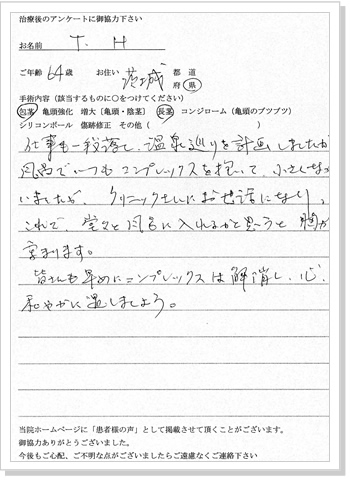 治療後のアンケートに御協力下さい
お名前 T. H
ご年齢 64歳 お住い 茨城 都 道 府 県
手術内容（該当するものに○をつけてください）
包茎 亀頭強化 増大［亀頭・陰茎］ 長茎 コンジローム（亀頭のブツブツ）
シリコンボール 傷跡修正 その他（ ）
仕事も一段落し、温泉巡りを計画しましたが
風呂でいつもコンプレックスを抱いて、小さくなって
いましたが、クリニックさんにお世話になり、
これで、堂々と風呂に入れるかと思うと胸が
高まります。
皆さんも早めにコンプレックスは解消し、心
和やかに過しましょう。
当院ホームページに「患者様の声」として掲載させて頂くことがございます。
御協力ありがとうございました。
今後もご心配、ご不明な点がございましたらご遠慮なくご連絡下さい